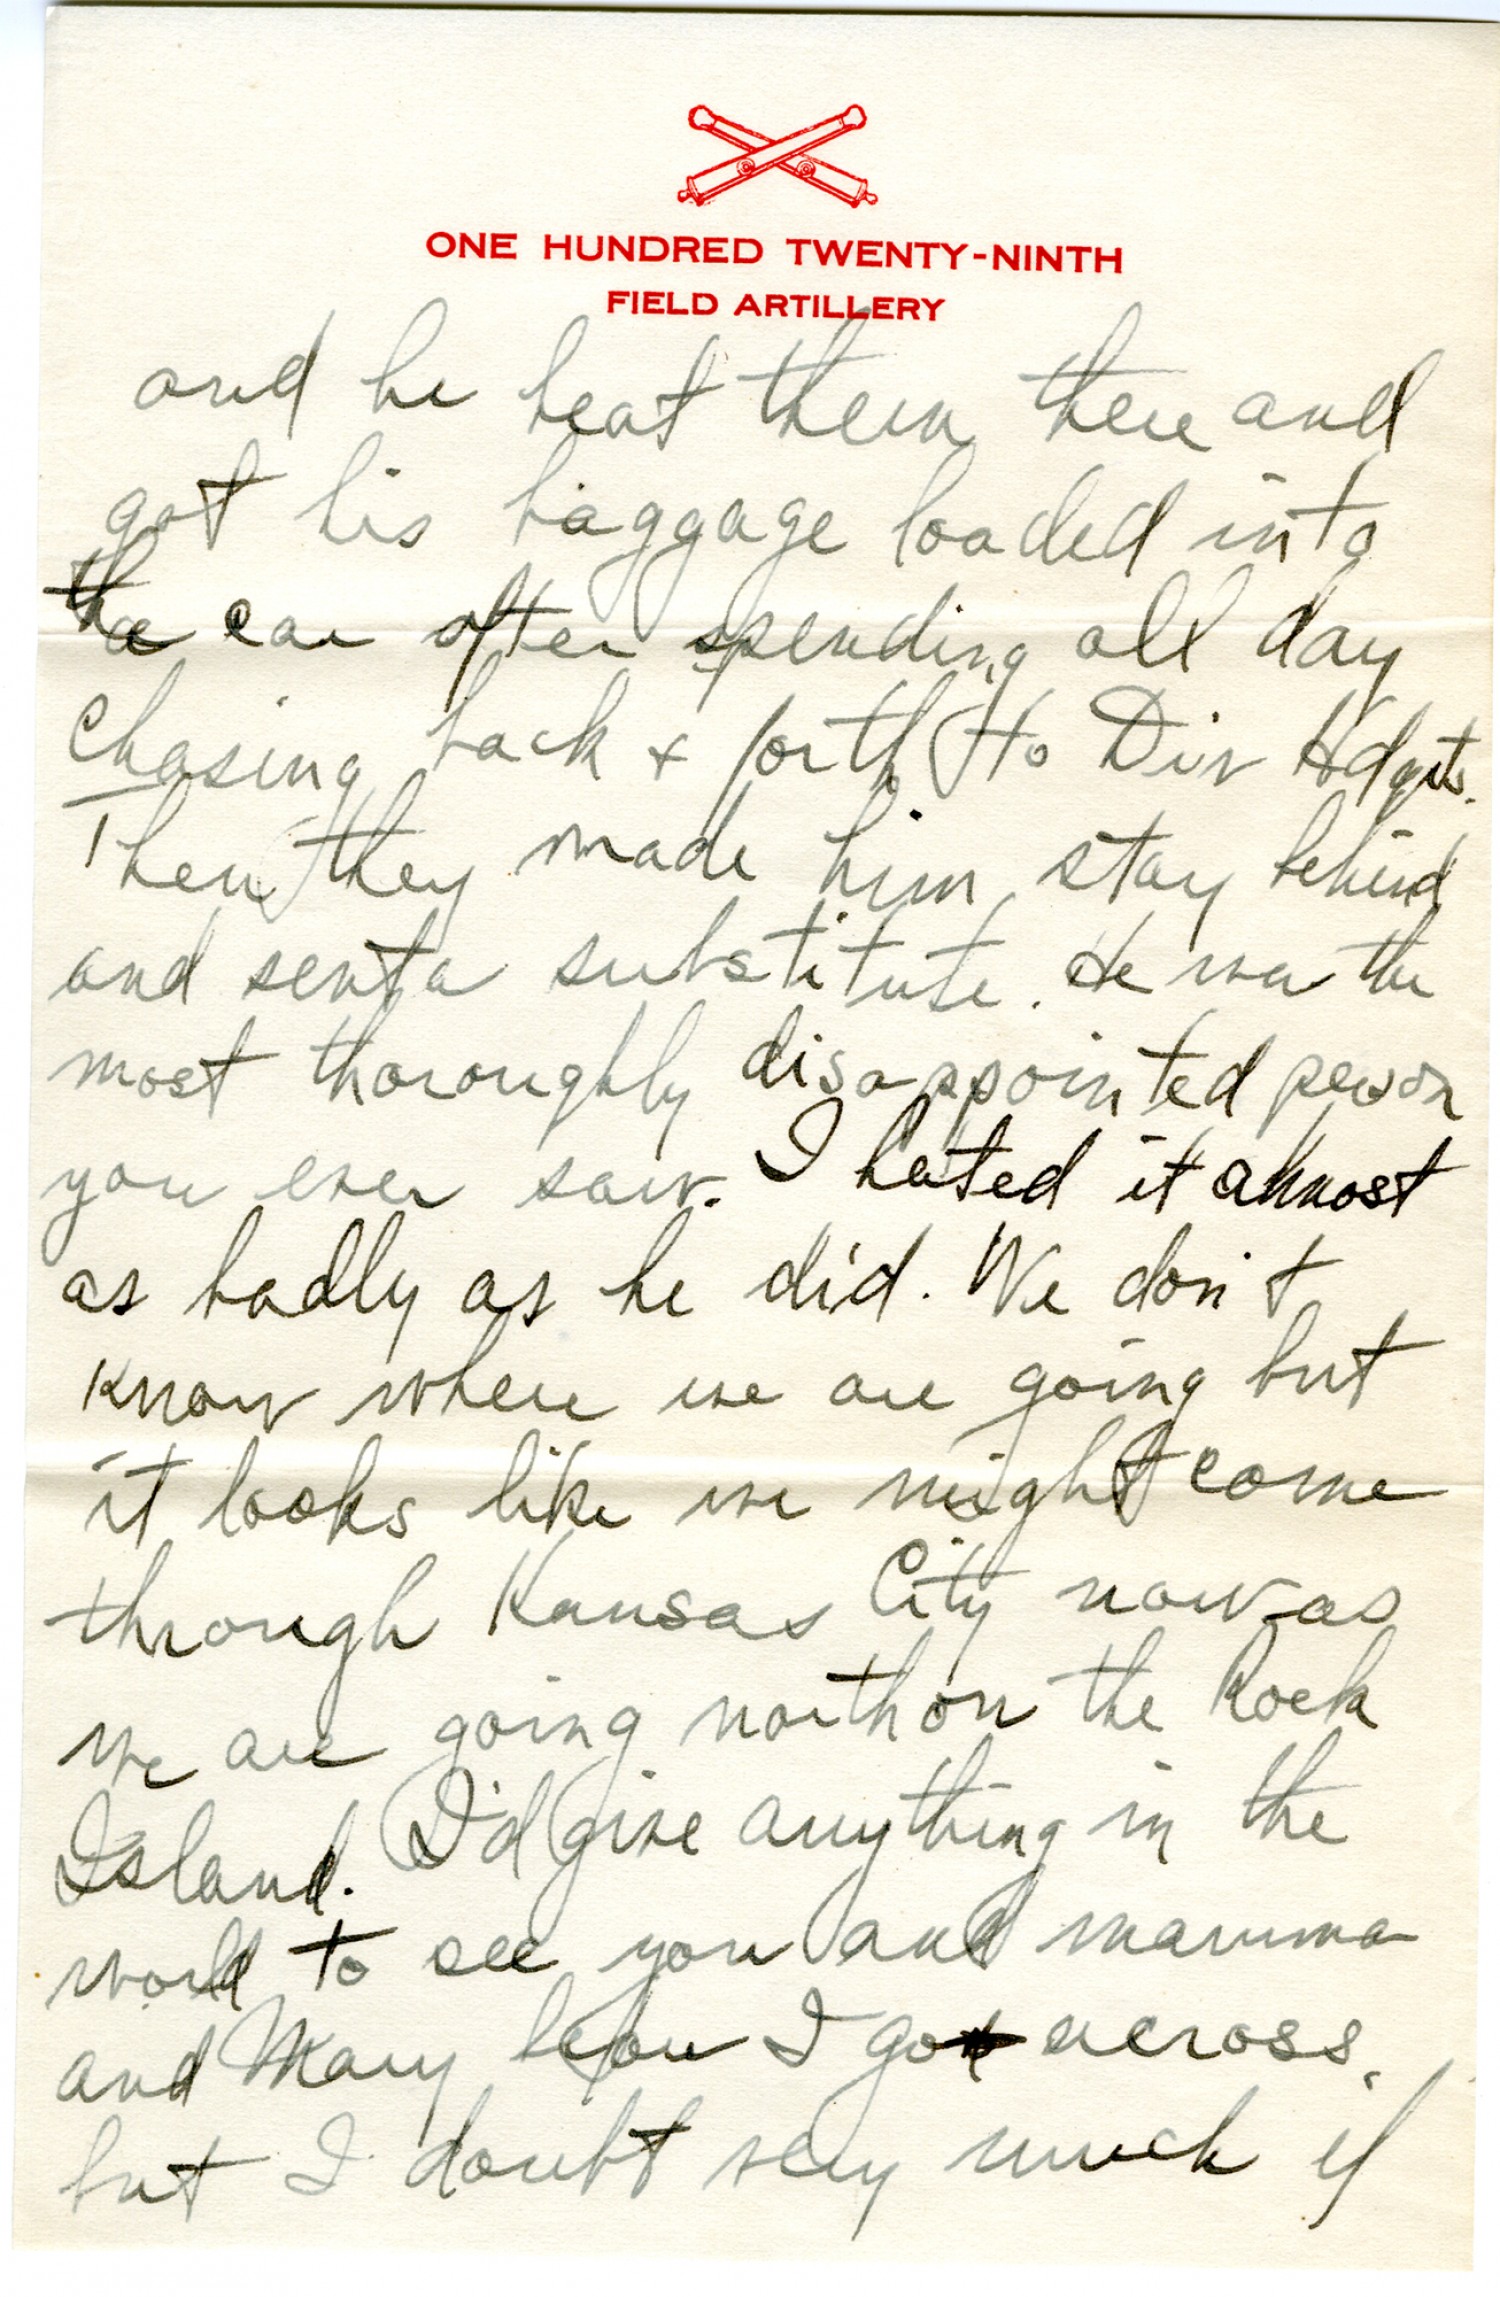 ONE HUNDRED TWENTY-NINTH
FIELD ARTILLERY
and he beat them there and
got his baggage loaded into
the car after spending all day
chasing back + forth to Div Hdqts.
Then they made him stay behind
and sent a substitute. He was the
most thoroughly disappointed person
you ever saw. I hated it almost
as badly as he did. We don't
know where we are going but
it looks like we might come
through Kansas City now as
we are going north on the Rock
Island. I'd give anything in the
world to see you and mamma
and Mary before I go across,
but I doubt very much if